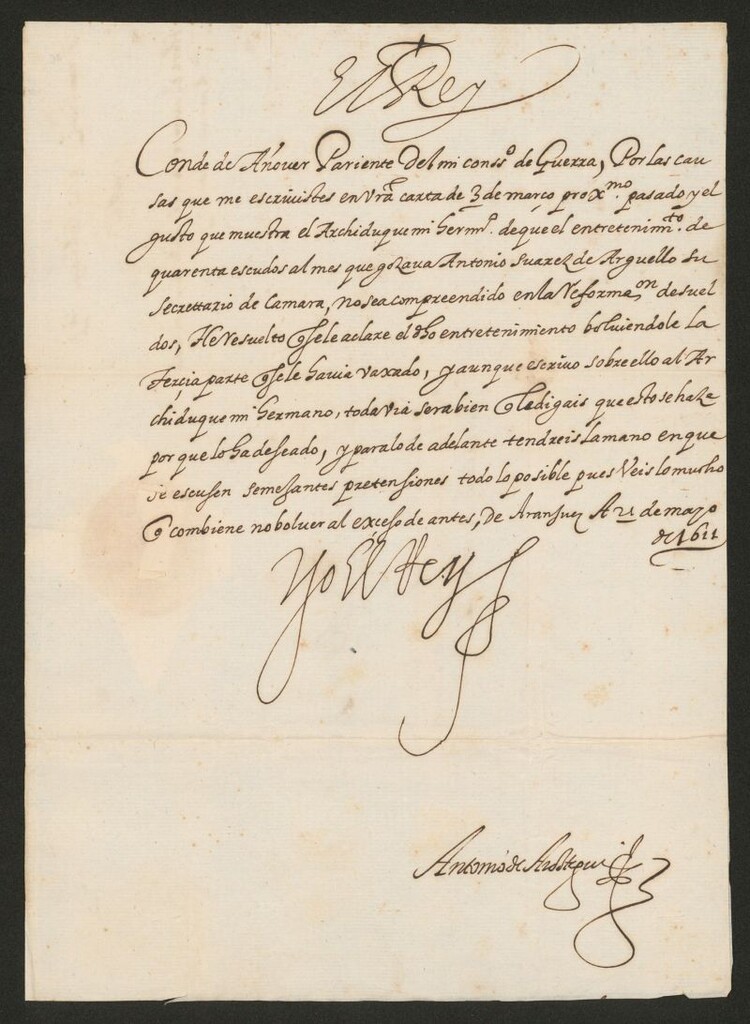 El Rey
Conde de Añover Pariente Del mi conss.º de Guerra, Por las cau
sas que me escrivistes en vrã carta de 3 de março prox.mo pasado y el
gusto que muestra el Archiduque mi Herm.º de que el entretenim.to de
quarenta escudos al mes que gozava Antonio Suarez de Arguello su
secrettario de Camara, no sea compreendido en la Reforma.on de suel
dos, He Resuelto q̃ se le aclare el dho entretenimiento bolviendole La
terçia parte q̃ se le havia vaxado, y aunque escrivo sobre ello al Ar
chiduque mi Hermano, toda via sera bien q̃ le digais que esto se haze
por que lo ha deseado, y para lo de adelante tendreis la mano en que
se escusen semejantes pretensiones todo lo posible pues Veis lo mucho
q̃ combiene no bolver al exceso de antes, De Aranjuez A 21 de mayo
de 1611
Yo El Rey
Antonio de Aroztegui